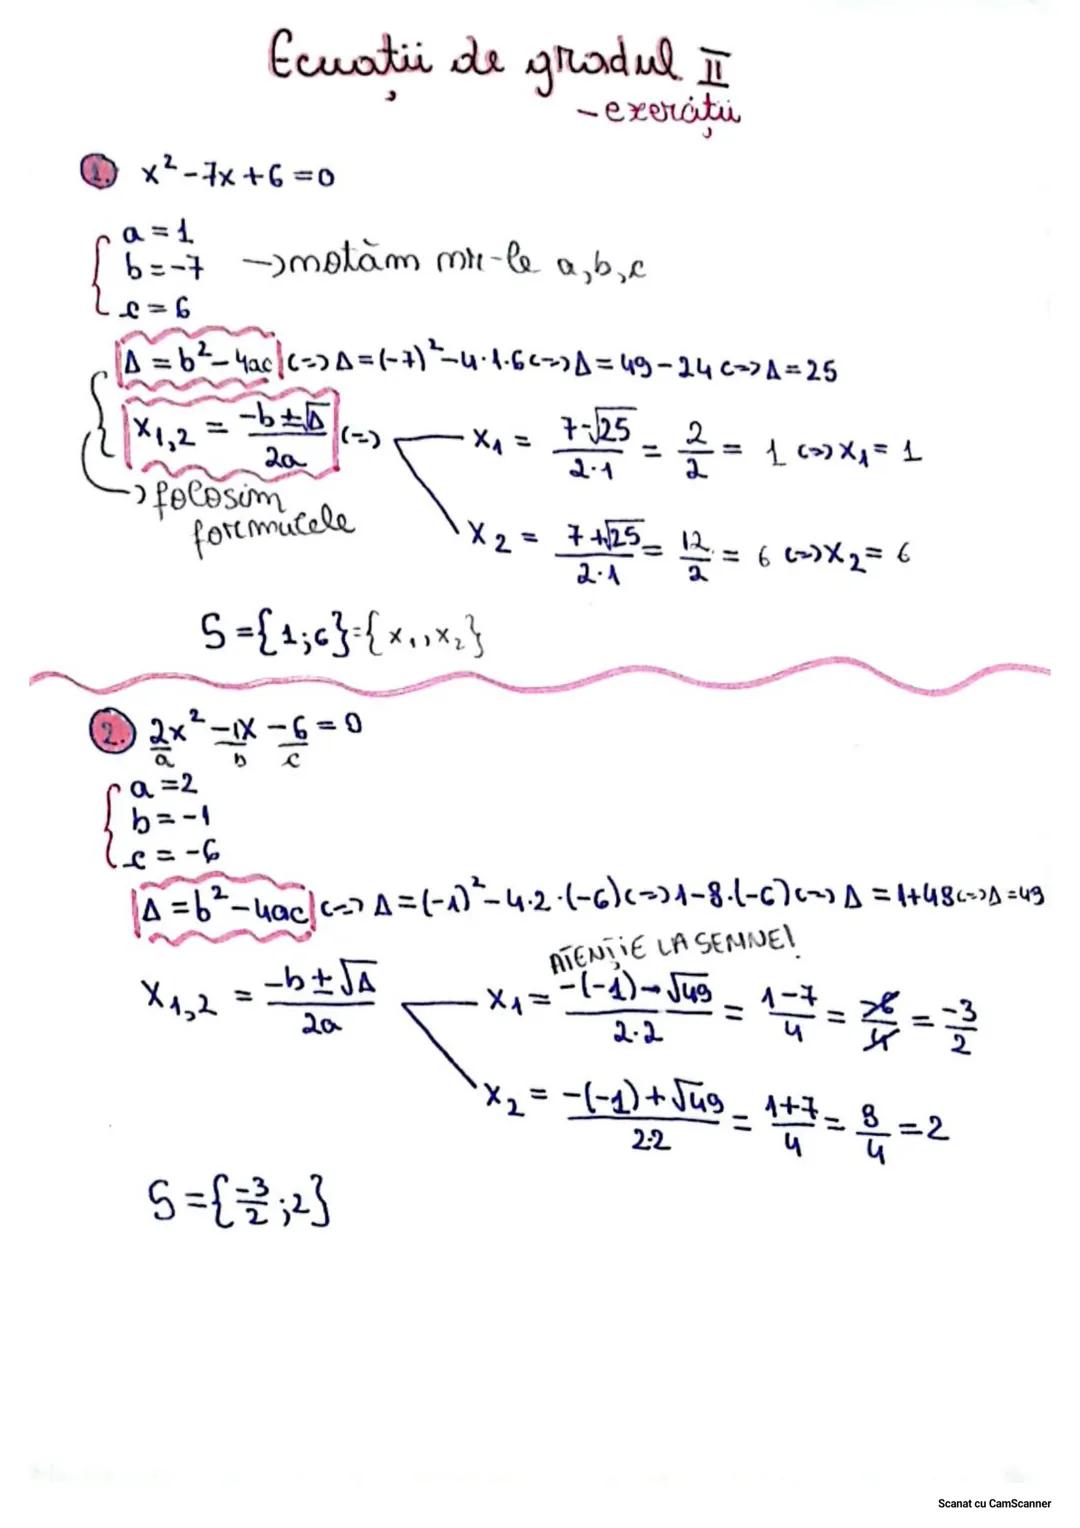 Ecuații de gradul II
-exerciții
1. x² - 7x + 6 = 0
a = 1
b = -7 → notăm nr-le a, b, c
c = 6
Δ = b² - 4ac <=> Δ = (-7)² - 4·1·6 <=> Δ = 49 - 24 <=> Δ = 25
x₁,₂ = (-b ± √Δ)/2a <=> x₁ = (7-√25)/(2·1) = 2/2 = 1 <=> x₁ = 1
→ folosim formulele
x₂ = (7+√25)/(2·1) = 12/2 = 6 <=> x₂ = 6
S = {1; 6} = {x₁, x₂}
2. 2x² - 1x - 6 = 0
a b c
a = 2
b = -1
c = -6
Δ = b² - 4ac <=> Δ = (-1)² - 4·2·(-6) <=> 1 - 8·(-6) <=> Δ = 1 + 48 <=> Δ = 49
ATENȚIE LA SEMNE!
x₁,₂ = (-b ± √Δ)/2a x₁ = (-(-1) - √49)/(2·2) = (1-7)/4 = = -3/2
x₂ = (-(-1) + √49)/(2·2) = (1+7)/4 = 8/4 = 2
S = {-3/2; 2}
Scanat cu CamScanner